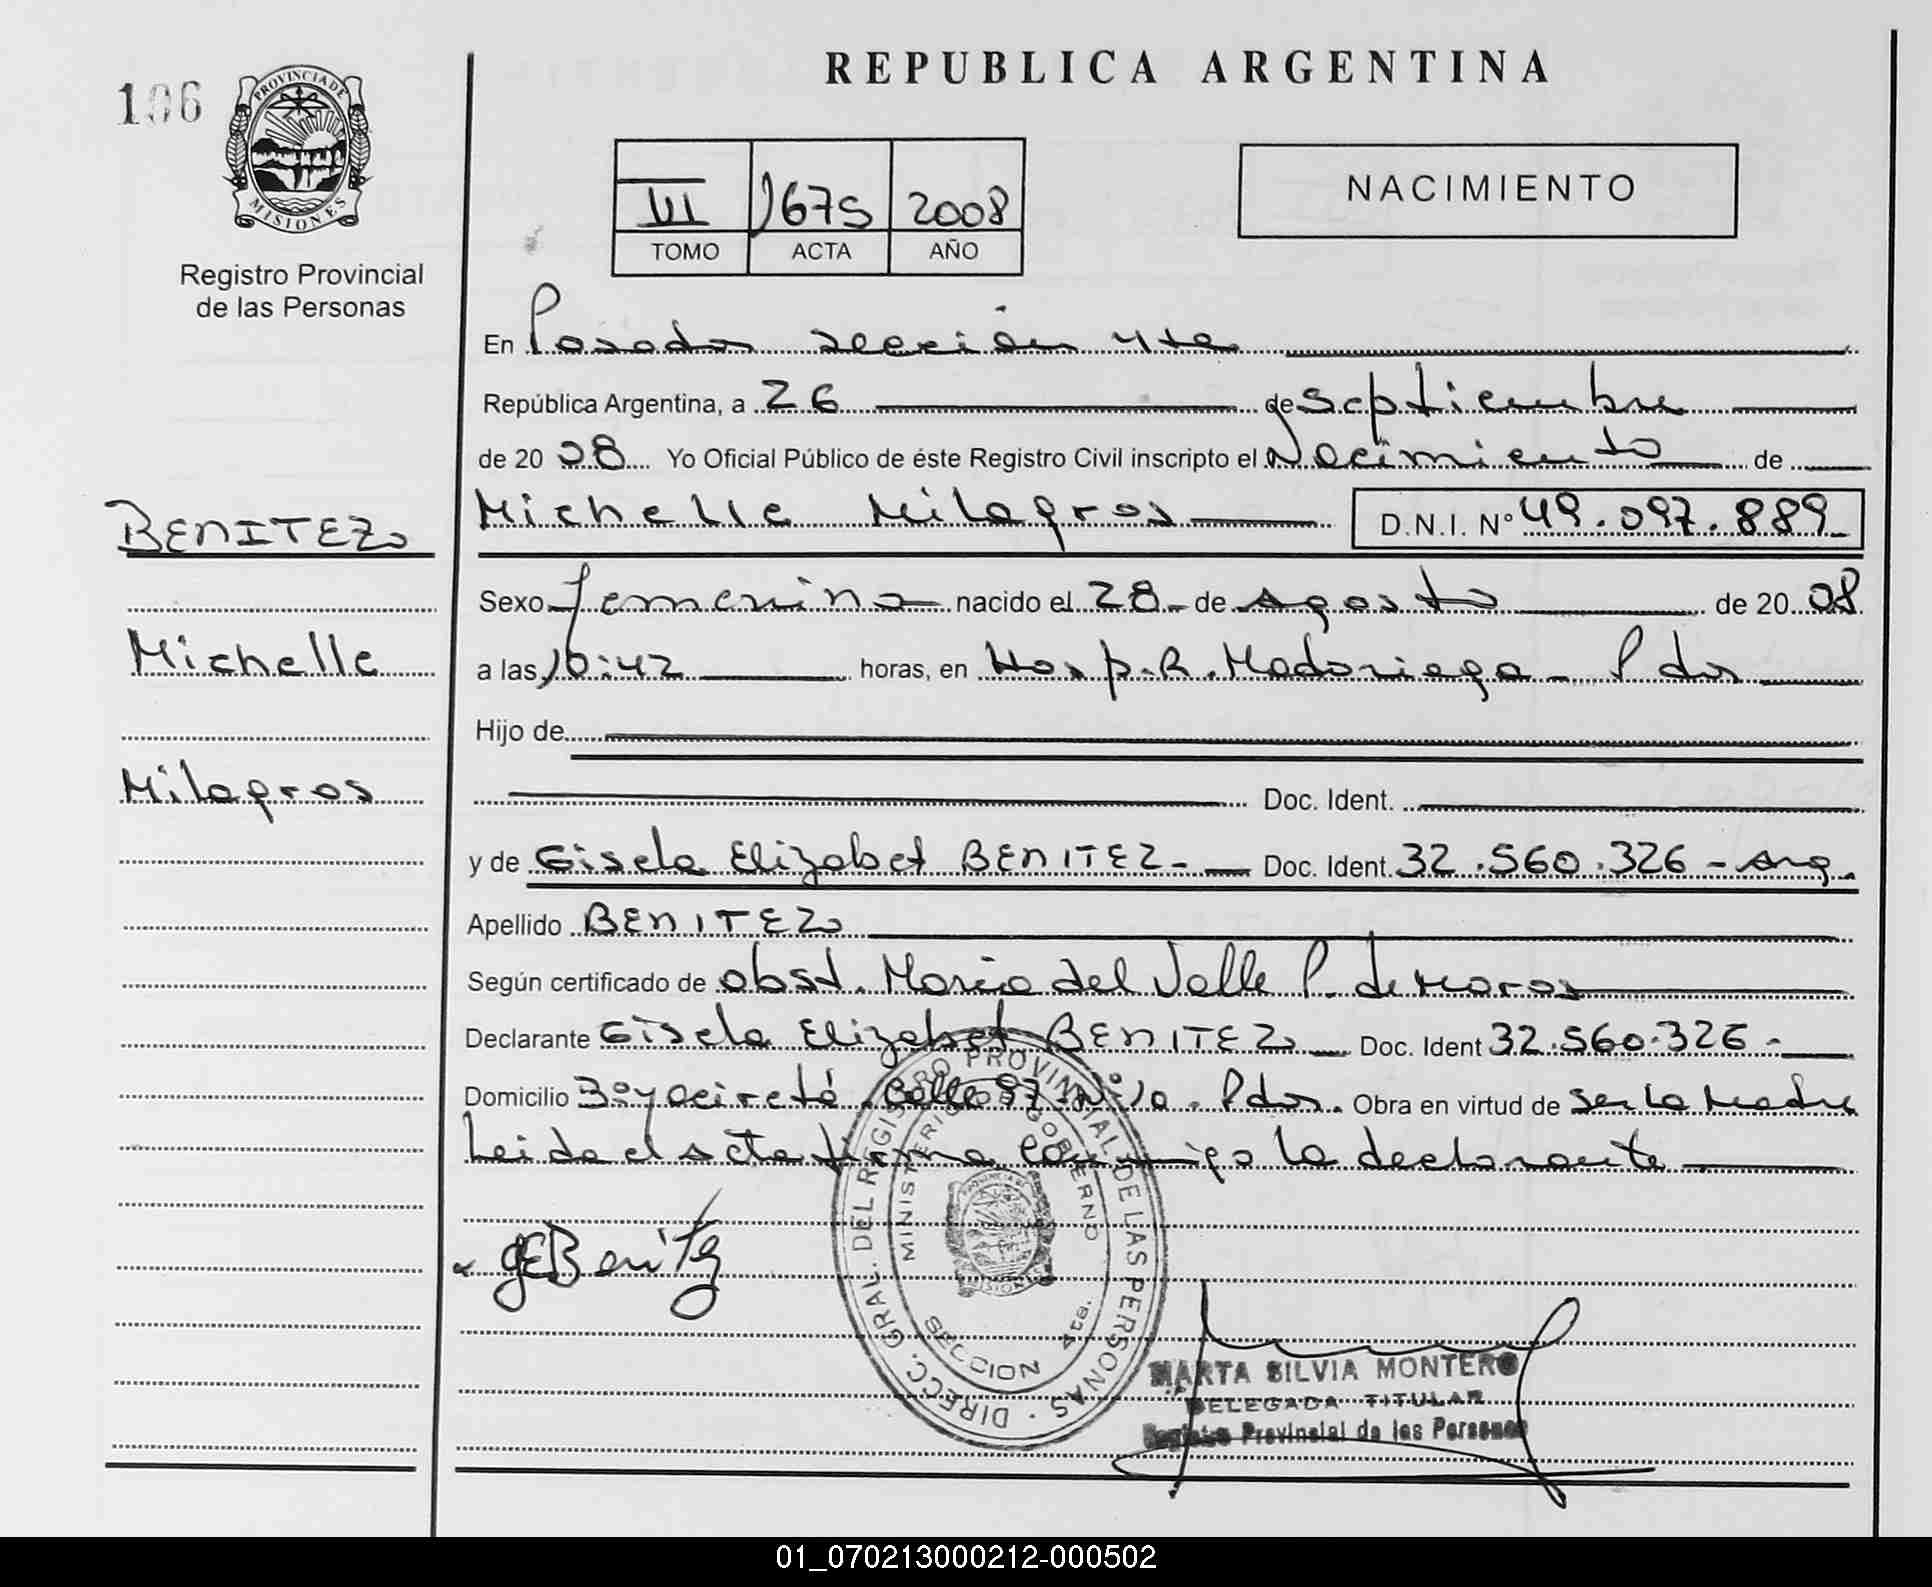 REPUBLICA ARGENTINA
106
PROVINCIA DE MISIONES
Registro Provincial
de las Personas
III 1675 2008
TOMO ACTA AÑO
NACIMIENTO
En Posadas sección 4ta
República Argentina, a 26 de Septiembre
de 20 08 Yo Oficial Público de éste Registro Civil inscripto el Nacimiento de
BENITEZ
Michelle Milagros D.N.I. Nº 49.097.889
Sexo femenino nacido el 28 de Agosto de 20 08
Michelle
a las 10:42 horas, en Hosp. R. Madariaga - Pdas
Hijo de
Milagros
Doc. Ident.
y de Gisela Elizabet BENITEZ - Doc. Ident. 32.560.326 - Arg.
Apellido BENITEZ
Según certificado de obst. María del Valle P. de Maras
Declarante Gisela Elizabet BENITEZ Doc. Ident 32.560.326 -
Domicilio Yacireté Calle 97 Pdas. Obra en virtud de ser la Madre
Leida el Acta firma conmigo la declarante
GEBenitez
DIRECC. GRAL. DEL REGISTRO PROVINCIAL DE LAS PERSONAS
MINISTERIO DE GOBIERNO
PROVINCIA DE MISIONES
SECCION 4ta.
MARTA SILVIA MONTERO
DELEGADA TITULAR
Registro Provincial de las Personas
01_070213000212-000502